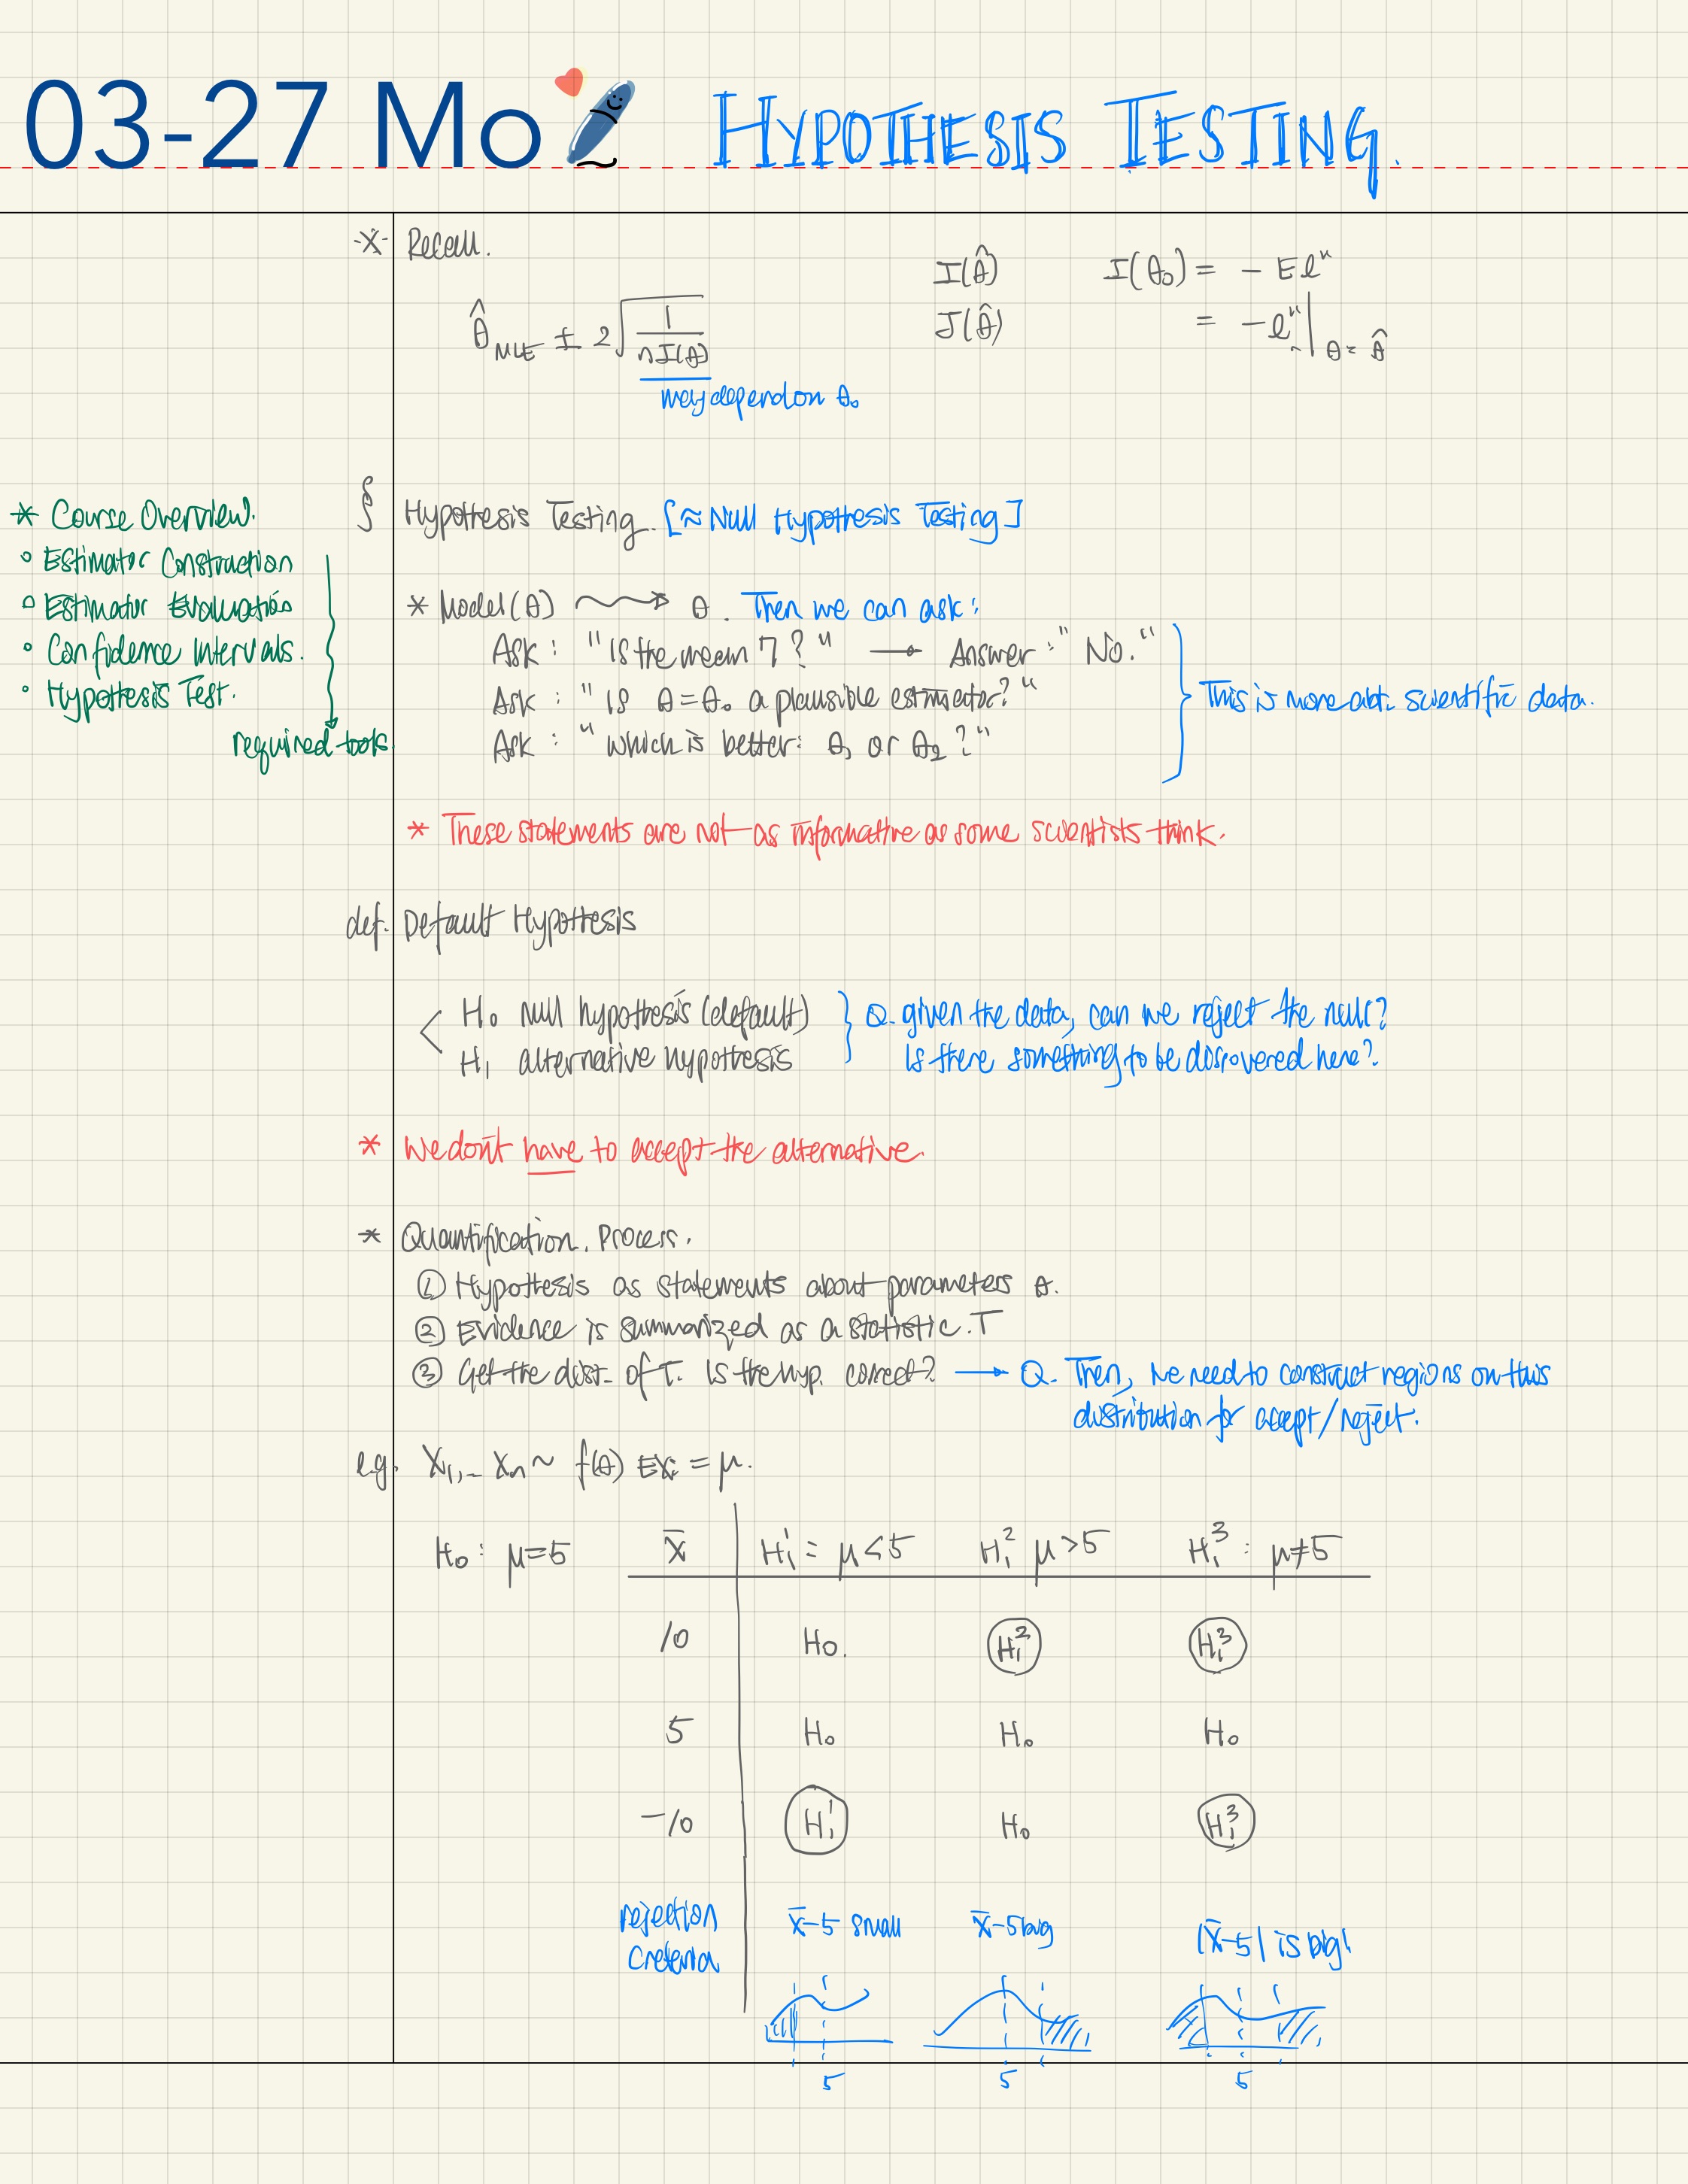 03-27 Mo HYPOTHESIS TESTING.
-X- Recall.
I(θ̂) I(θ₀) = - E ℓ"
θ̂ MLE ± 2 √(1 / nI(θ)) J(θ̂) = - ℓ"ₙ | θ = θ̂
may depend on θ₀
* Course Overview.
◦ Estimator Construction
◦ Estimator Evaluation
◦ Confidence Intervals.
◦ Hypothesis Test.
required tools
§ Hypothesis Testing. [≈ Null Hypothesis Testing]
* Model(θ) ⟿ θ. Then we can ask:
Ask : "Is the mean 7?" → Answer: "No."
Ask : "Is θ=θ₀ a plausible estimator?"
Ask : "Which is better: θ₁ or θ₂?"
This is more abt. scientific data.
* These statements are not as informative as some scientists think.
def. Default Hypothesis
H₀ null hypothesis (default)
H₁ alternative hypothesis
Q. given the data, can we reject the null?
Is there something to be discovered here?
* We don't have to accept the alternative.
* Quantification. Process.
① Hypothesis as statements about parameters θ.
② Evidence is summarized as a statistic. T
③ Get the dist. of T. Is the hyp. correct? → Q. Then, we need to construct regions on this
distribution for accept/reject.
e.g. X₁,… Xₙ ~ f(θ) EXᵢ = μ.
H₀: μ=5 X̄ H₁¹ = μ<5 H₁² μ>5 H₁³ : μ≠5
10 H₀. H₁² H₁³
5 H₀ H₀ H₀
-10 H₁¹ H₀ H₁³
rejection X̄-5 small X̄-5 big |X̄-5| is big!
creteria
5 5 5